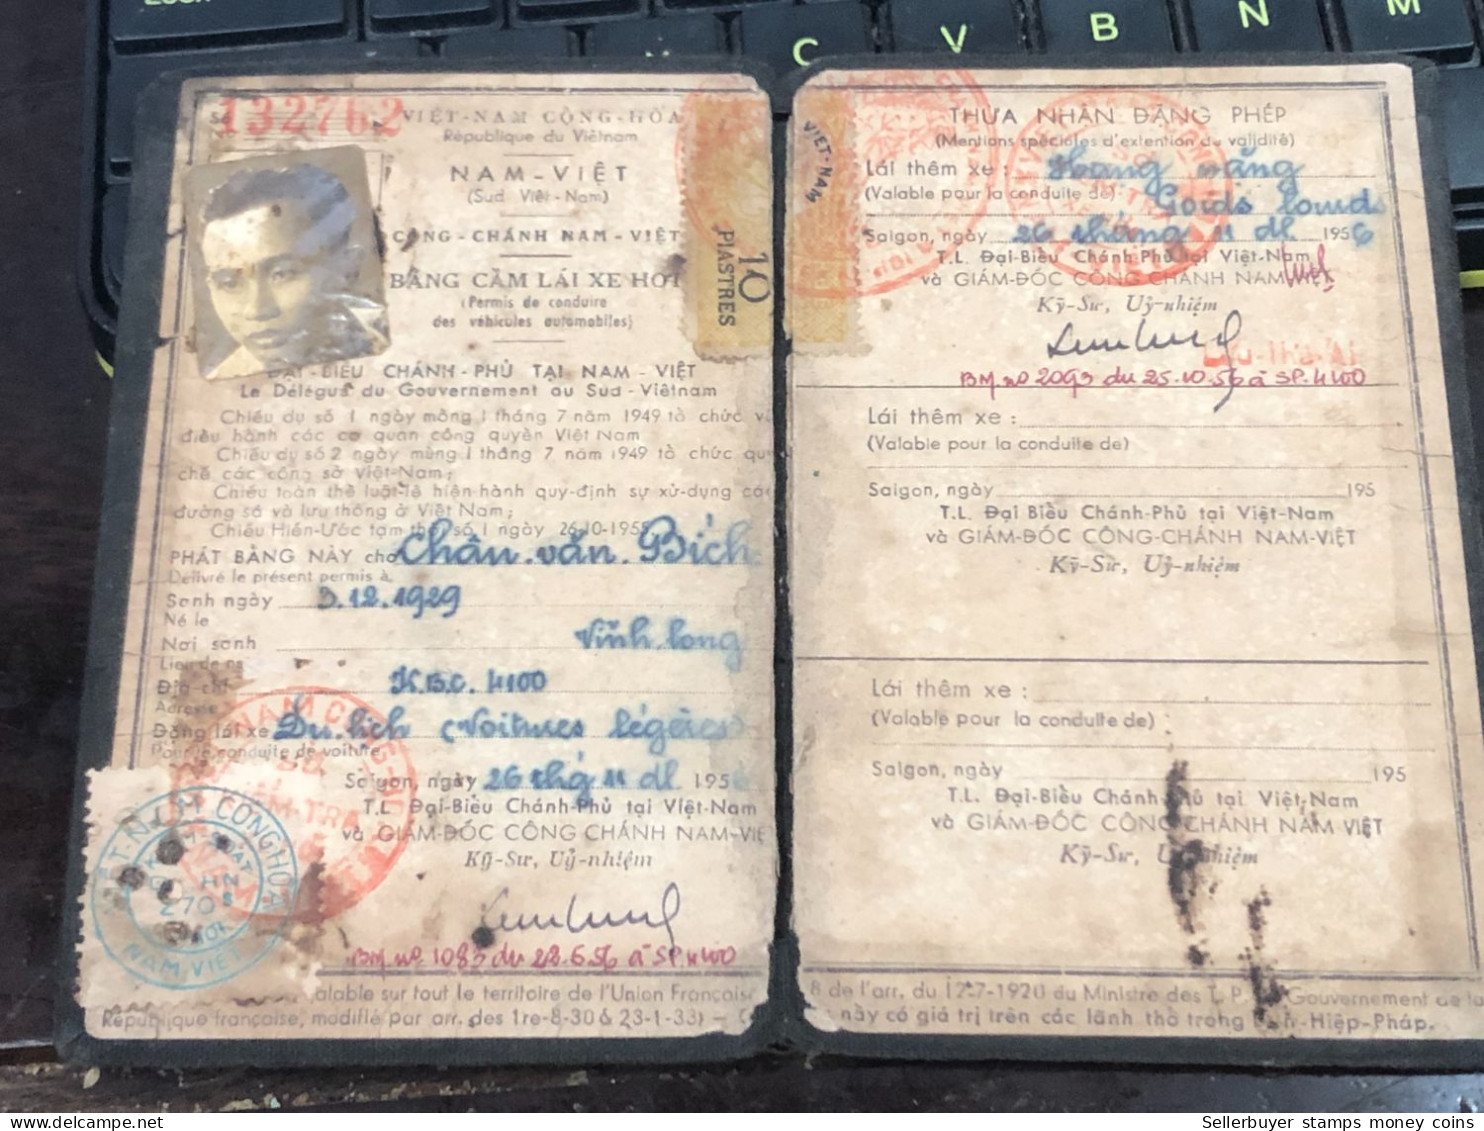 C V B N M
132762
VIỆT-NAM CỘNG-HÒA
République du Viêtnam
NAM-VIỆT
(Sud Việt-Nam)
CÔNG-CHÁNH NAM-VIỆT
BẰNG CẦM LÁI XE HƠI
(Permis de conduire
des véhicules automobiles)
ĐẠI-BIỂU CHÁNH-PHỦ TẠI NAM-VIỆT
Le Délégué du Gouvernement au Sud-Viêtnam
Chiếu dụ số 1 ngày mồng 1 tháng 7 năm 1949 tổ chức và
điều hành các cơ quan công quyền Việt Nam
Chiếu dụ số 2 ngày mùng 1 tháng 7 năm 1949 tổ chức quy
chế các công sở Việt-Nam;
Chiếu toàn thể luật-lệ hiện-hành quy-định sự xử-dụng các
đường sá và lưu thông ở Việt-Nam;
Chiếu Hiến-Ước tạm thời số 1 ngày 26-10-1955
PHÁT BẰNG NÀY cho Châu-văn-Bích
Délivré le présent permis à
Sanh ngày 3.12.1929
Né le
Nơi sanh Vĩnh long
Lieu de
Địa chỉ K.B.C. 4100
Adresse
Đặng lái xe Du-lịch (Voitures légères)
Pour la conduite de voiture
Saigon, ngày 26 thg 11 dl 1956
T.L. Đại-Biểu Chánh-Phủ tại Việt-Nam
và GIÁM-ĐỐC CÔNG CHÁNH NAM-VIỆ
Kỹ-Sư, Uỷ-nhiệm
BM nº 1083 du 28.6.56 à SP 4100
VIỆT-NAM CỘNG HÒA
270$
NAM VIỆT
alable sur tout le territoire de l'Union Française
République française, modifié par arr. des 1re-8-30 & 23-1-33) –
VIỆT-NAM
10
PIASTRES
THỪA NHẬN ĐẶNG PHÉP
(Mentions spéciales d'extention de validité)
Lái thêm xe : Hạng nặng
(Valable pour la conduite de) Poids lourds
Saigon, ngày 26 tháng 11 dl 1956
T.L. Đại-Biểu Chánh Phủ tại Việt-Nam
và GIÁM-ĐỐC CÔNG CHÁNH NAM-VIỆT
Kỹ-Sư, Uỷ-nhiệm
BM nº 2093 du 25.10.56 à SP. 4100
Lái thêm xe :
(Valable pour la conduite de)
Saigon, ngày 195
T.L. Đại Biểu Chánh-Phủ tại Việt-Nam
và GIÁM-ĐỐC CÔNG-CHÁNH NAM-VIỆT
Kỹ-Sư, Uỷ-nhiệm
Lái thêm xe :
(Valable pour la conduite de)
Saigon, ngày 195
T.L. Đại-Biểu Chánh-Phủ tại Việt-Nam
và GIÁM-ĐỐC CÔNG CHÁNH NAM VIỆT
Kỹ-Sư, Uỷ-nhiệm
8 de l'arr. du 17-7-1920 du Ministre des T. P. Gouvernement de la
này có giá trị trên các lãnh thổ trong -Hiệp-Pháp.
Sellerbuyer stamps money coins